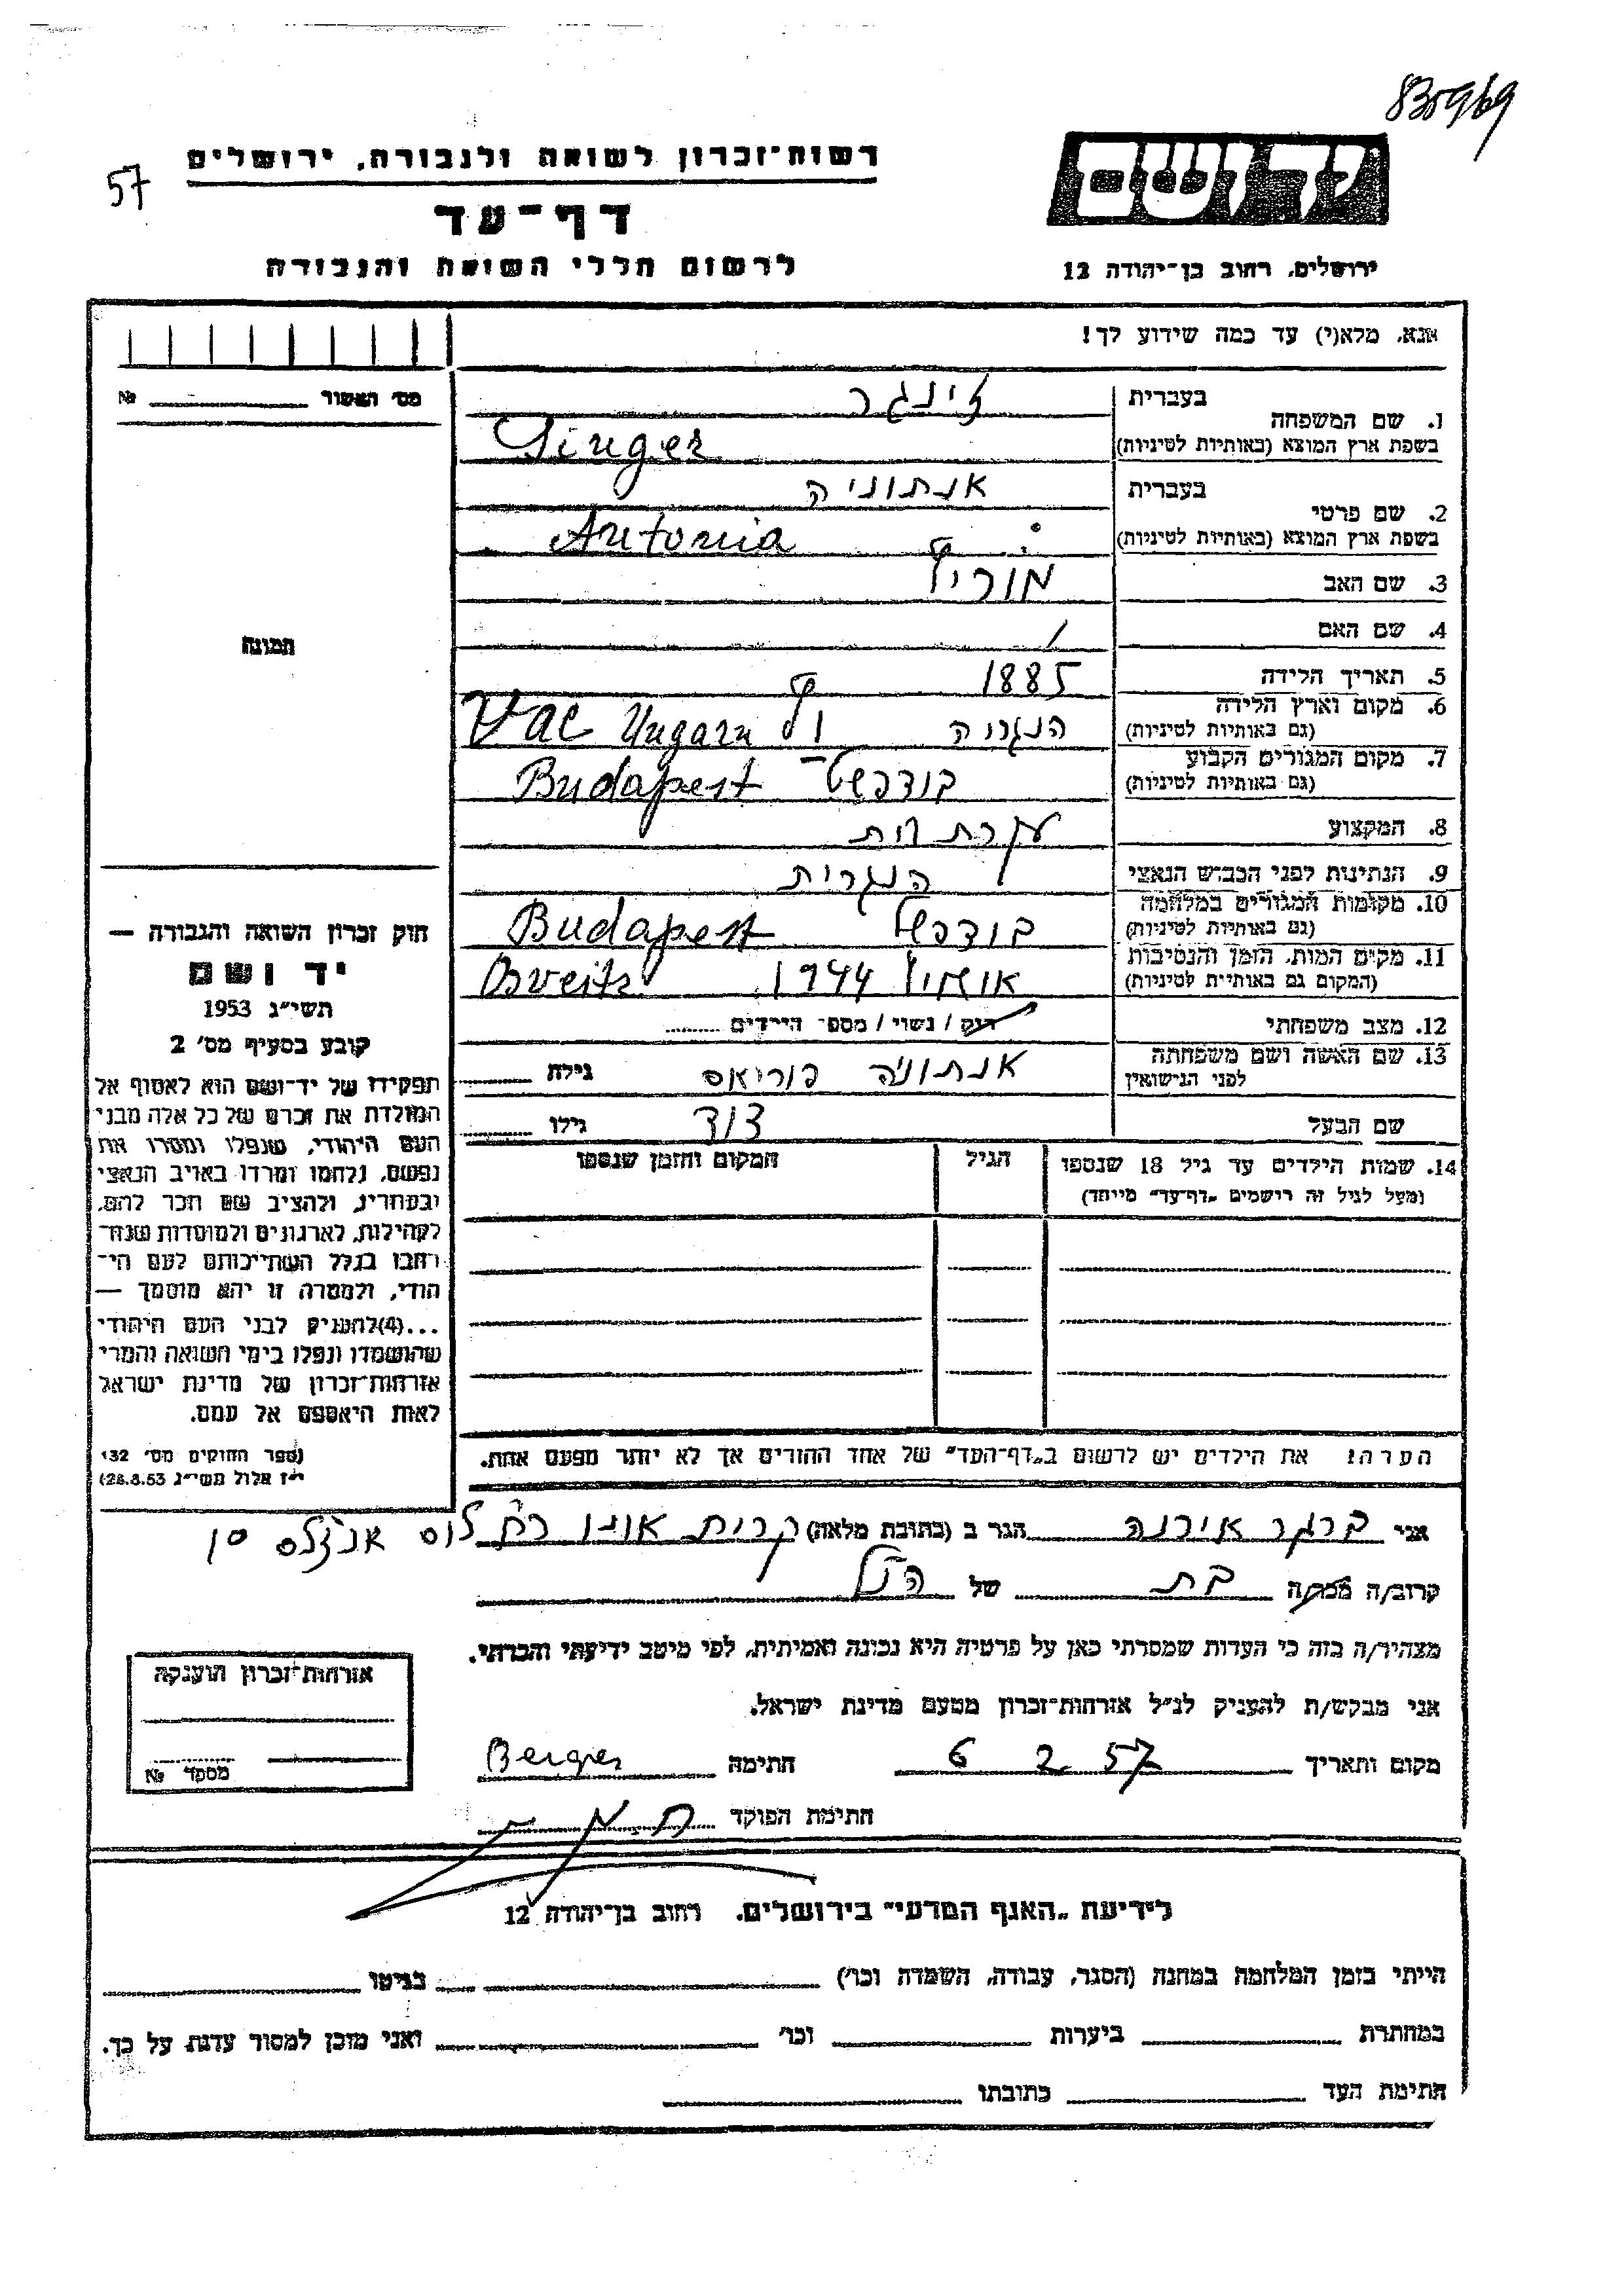 830969
57
רשות־זכרון לשואה ולגבורה, ירושלים
יד ושם
דף־עד
לרשום חללי השואה והגבורה
ירושלים, רחוב בן־יהודה 12
אנא, מלא(י) עד כמה שידוע לך!
מס׳ האשור № 
1. שם המשפחה
בעברית זינגר
בשפת ארץ המוצא (באותיות לטיניות) Singer
2. שם פרטי
בעברית אנתוניה
בשפת ארץ המוצא (באותיות לטיניות) Antonia
3. שם האב מוריץ
4. שם האם /
5. תאריך הלידה 1885
6. מקום וארץ הלידה
(גם באותיות לטיניות) הנגריה Vac Ungarn
7. מקום המגורים הקבוע
(גם באותיות לטיניות) בודפשט Budapest
8. המקצוע עקרת בית
9. הנתינות לפני הכבוש הנאצי הנגרית
10. מקומות המגורים במלחמה
(גם באותיות לטיניות) בודפשט Budapest
11. מקום המות, הזמן והנסיבות
(המקום גם באותיות לטיניות) אושויץ 1944
12. מצב משפחתי רוק / נשוי / מספר הילדים
13. שם האשה ושם משפחתה
לפני הנישואין אנתוניה גילה
שם הבעל דוד גילו
14. שמות הילדים עד גיל 18 שנספו
(מעל לגיל זה רישמים „דף־עד” מייחד)
הגיל
המקום והזמן שנספו
הערה! את הילדים יש לרשום ב„דף־העד” של אחד ההורים אך לא יותר מפעם אחת.
תמונה
חוק זכרון השואה והגבורה —
יד ושם
תשי״ג 1953
קובע בסעיף מס׳ 2
תפקידו של יד־ושם הוא לאסוף אל
המולדת את זכרם של כל אלה מבני
העם היהודי, שנפלו ומסרו את
נפשם, נלחמו ומרדו באויב הנאצי
ובעוזריו, ולהציב שם וזכר להם,
לקהילות, לארגונים ולמוסדות שנח־
רחבו בגלל השתייכותם לעם הי־
הודי, ולמטרה זו יהא מוסמך —
...(4)להעניק לבני העם היהודי
שהושמדו ונפלו בימי השואה והמרי
אזרחות־זכרון של מדינת ישראל
לאות היאספם אל עמם.
(ספר החוקים מס׳ 132
י״ז אלול תשי״ג 28.8.53)
אני ברגר אירנה הגר ב (כתובת מלאה) קרית אונו רח לוס אנג׳לס
קרוב/ה ממר/ה בת של הנ״ל
מצהיר/ה בזה כי העדות שמסרתי כאן על פרטיה היא נכונה ואמיתית, לפי מיטב ידיעתי והכרתי.
אני מבקש/ת להעניק לנ״ל אזרחות־זכרון מטעם מדינת ישראל.
מקום ותאריך 6 2 57 חתימה Berger
חתימת הפוקד
אזרחות־זכרון הוענקה
מספר №
לידיעת „האגף המדעי” בירושלים, רחוב בן־יהודה 12
הייתי בזמן המלחמה במחנה (הסגר, עבודה, השמדה וכו׳) בגיטו
במחתרת ביערות וכו׳ ואני מוכן למסור עדות על כך.
חתימת העד כתובתו